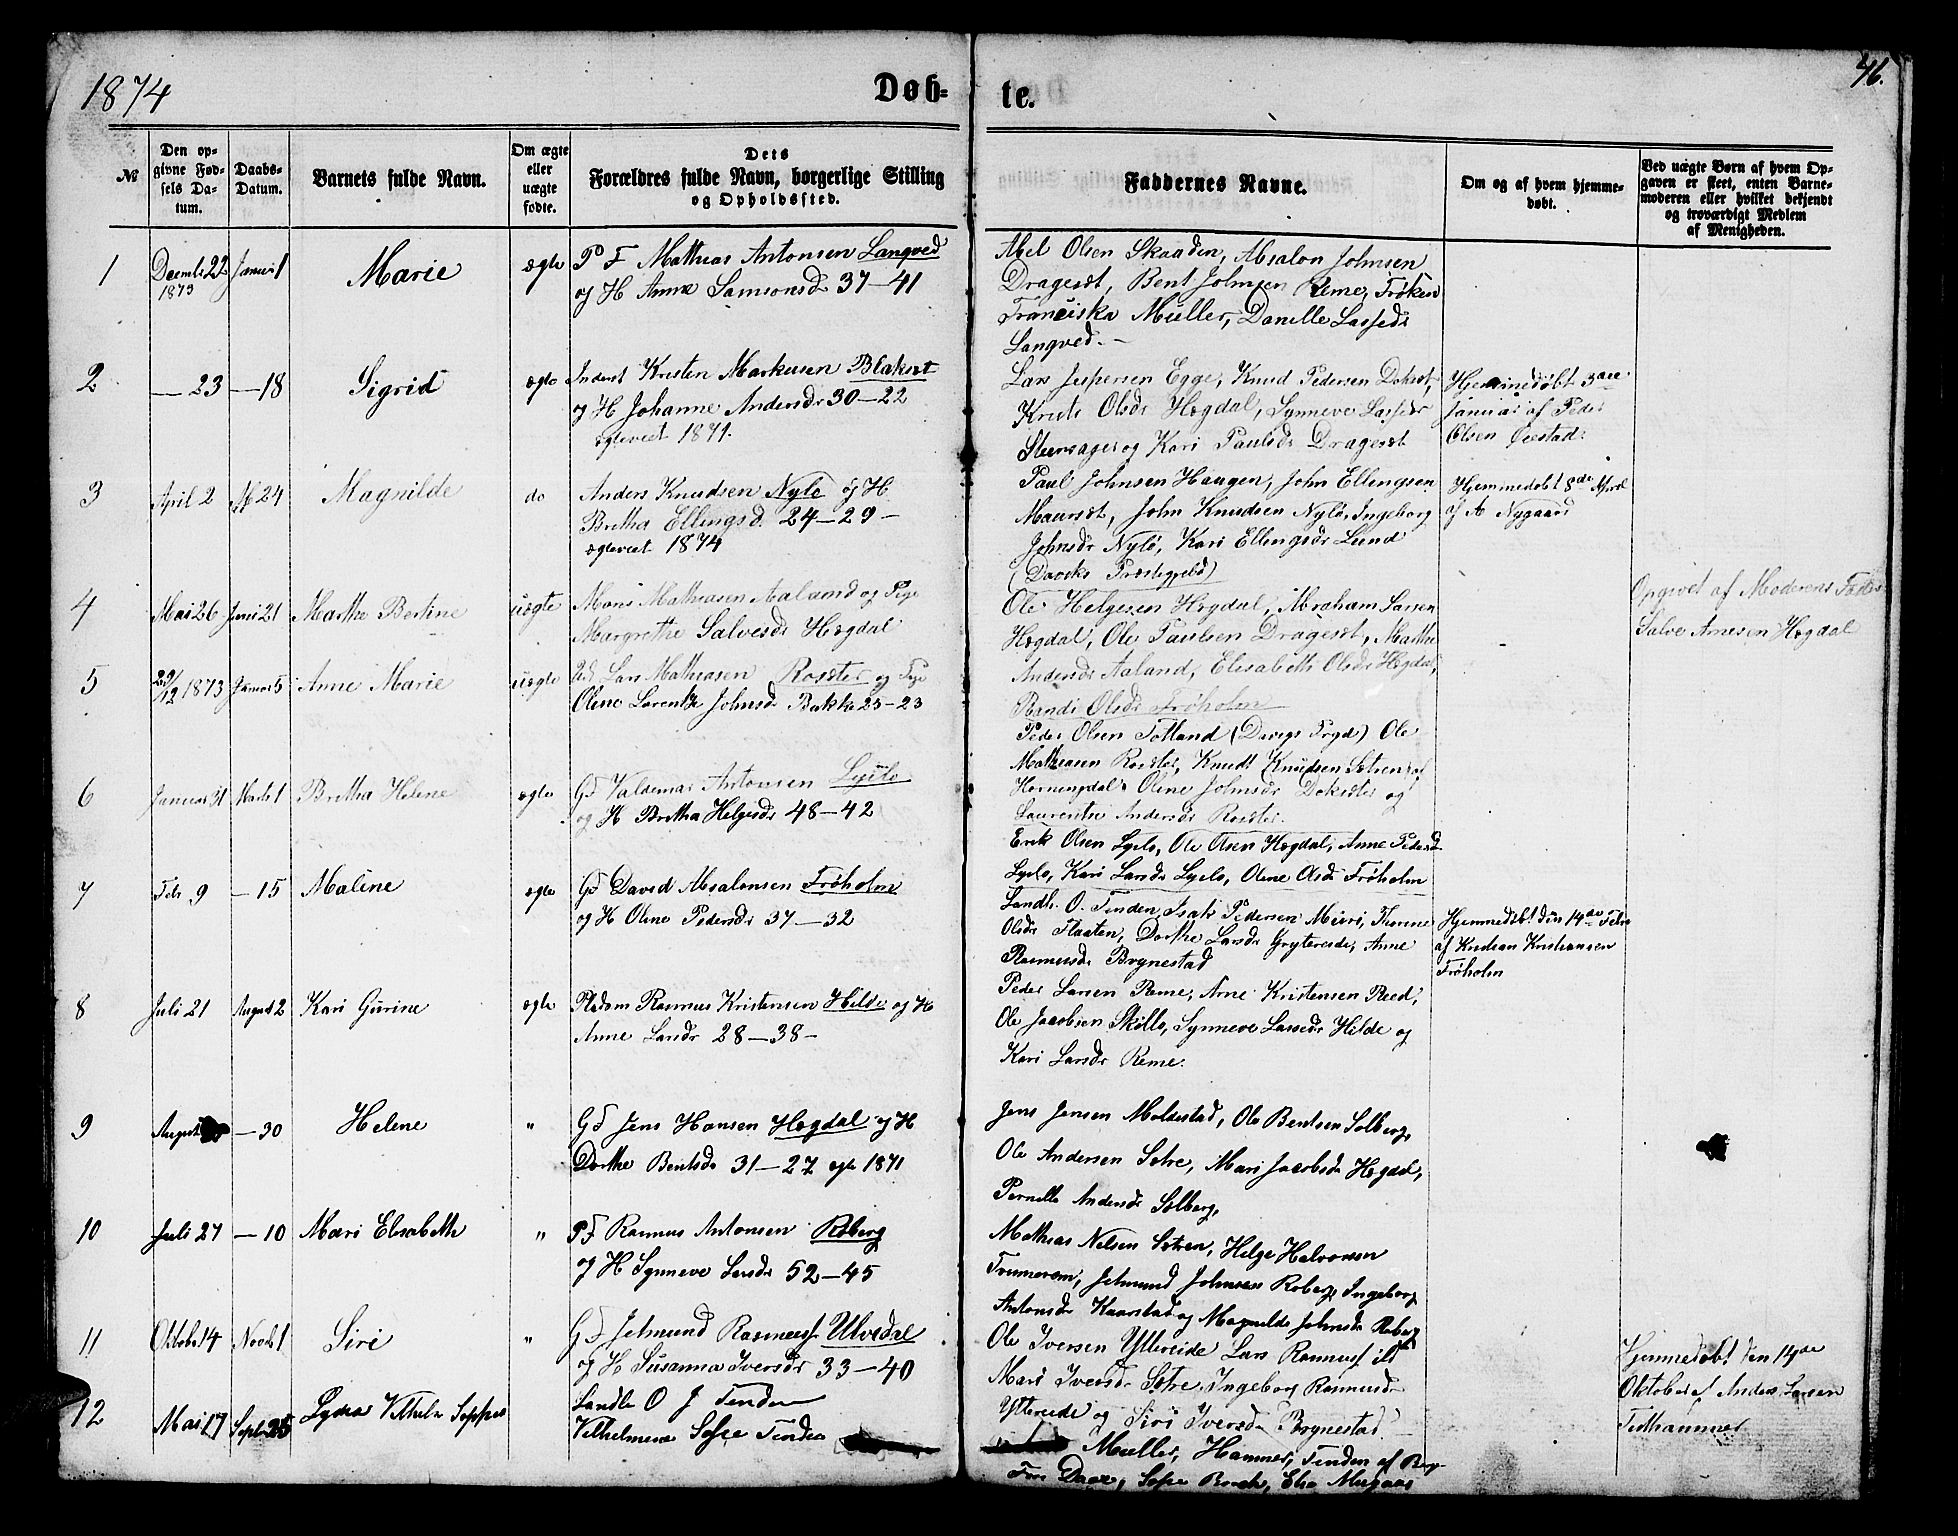 1874
Døb-
te.
46.
№
Den op-
givne Fød-
sels Da-
tum.
Daabs-
Datum.
Barnets fulde Navn.
Om ægte
eller
uægte
fødte.
Dets
Forældres fulde Navn, borgerlige Stilling
og Opholdssted.
Faddernes Navne.
Om og af hvem hjemme-
døbt.
Ved uægte Børn af hvem Op-
gaven er skeet, enten Barne-
moderen eller hvilket bekjendt
og troværdigt Medlem
af Menigheden.
1
Decemb 22
1873
Januar 1
Marie
ægte
P F Mathias Antonsen Langved
og H Anne Samsonsd 37-41
Abel Olsen Skaaden, Absalon Johnsen
Dragesæt, Bent Johnsen Reme, Frøken
Franciska Müller, Danelle Lassedr
Langved.-
2
— 23
— 18
Sigrid
ægte
Inderst Kristen Markusen Blaksæt
og H Johanne Andersdr 30-22
ægteviet 1871.
Lars Jespersen Egge, Knud Pedersen Doksæt,
Olsdr Høgdal, Synneve Lassedr
og Kari Paulsdr Dragesæt
Hjemmedøbt 3die
Januar af Peder
Olsen
3
April 2
24
Magnilde
do
Anders Knudsen Nylo og H
Bretha Ellingsd. 24-29-
ægteviet 1874
Paul Johnsen Haugen, John Ellingsen
Maursæt, John Knudsen Nylø, Ingeborg
Johnsdr Nylø, Kari Ellingsdr Lund
(Daviks Præstegjeld)
Hjemmedøbt 8de April
af A Nygaard
4
Mai 26
Juni 21
Marthe Bertine
uægte
Mons Mathiasen Aaland og Pige
Margrethe Salvesdr Høgdal
Ole Helgesen Høgdal, Abraham Larsen
Høgdal, Ole Paulsen Dragesæt, Marthe
Andersdr Aaland, Elisabeth Olsdr Høgdal,
Randi Olsdr Frøholm
Opgivet af Moderens Fader
Salve Arnesen Høgdal
5
29/12 1873
Januar 5
Anne Marie
uægte
Lars Mathiasen Rosæter og Pige
Oline Lorentze Johnsd Bakke 25-23
Peder Olsen Totland (Davigs Prgd) Ole
Mathiasen Rosæter, Knudt Knudsen Sætren af
Hornengdal, Oline Johnsdr Doksæter og
Laurentse Andersdr Rosæter.
6
Januar 31
Marts 1
Bretha Helene
ægte
Gd Valdemar Antonsen Lyslo
og H Bretha Helgesdr 48-42
Erik Olsen Lyslo, Ole Olsen Høgdal, Anne Pedersd
Lyslo, Kari Larsdr Lyslo, Oline Olsdr Frøholm
7
Febr 9
— 15
Maline
ægte
Gd David Absalonsen Frøholm
og H Oline Pedersdr 37-32
Landh. O. Tenden, Isak Pedersen Muri, Thorine
Olsdr Flaaten, Dorthe Larsdr Grytereide, Anne
Rasmusdr Bognestad
Hjemmedøbt den 14de Febr
af Kristian Kristiansen
Frøholm
8
Juli 21
August 2
Kari Gurine
ægte
Pladsm Rasmus Kristensen Hilde og H
Anne Larsdr 28-38-
Peder Larsen Reme, Arne Kristensen Reed,
Ole Jacobsen Skøllo, Synneve Lassedr Hilde og
Kari Larsdr Reme.
9
August
— 30
Helene
"
Gd Jens Hansen Høgdal og H
Dorthe Bentsdr 31-27 ægte 1871
Jens Jensen Moldestad, Ole Bentsen Solberg,
Ole Andersen Sætre, Mari Jacobsdr Høgdal,
Pernelle Andersdr Solberg,
10
Juli 27
— 10
Mari Elisabeth
"
P.F Rasmus Antonsen Roberg
og H Synneve Larsdr 52-45
Mathias Nilsen Sætren, Helge Halvorsen
Jetmund Johnsen Roberg, Ingeborg
Antonsdr Kaarstad og Magnilde Johnsdr Roberg
11
Oktober 14
Novbr 1
Siri
"
Gd Jetmund Rasmuss. Ulvedal
og H Susanna Iversdr 33-40
Ole Iversen Yttereide Lars Rasmuss
Mari Iversdr Sætre, Ingeborg Rasmusdr
Yttereide og Siri Iversdr Bognestad
Hjemmedøbt den 14de
Oktober af Anders Larsen
12
Mai 17
Septbr 25
Vilhelm
Landh O J Tenden
Vilhelmine Sofie Tenden
Muller, Hammer, Tenden af
Sofie